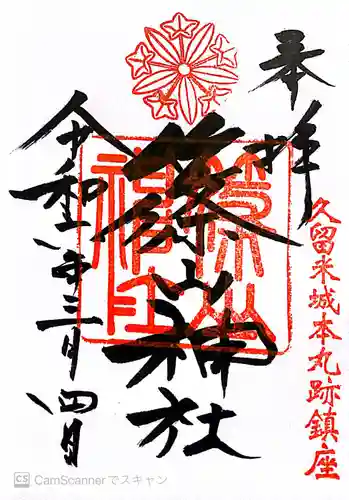 奉拝
久留米城本丸跡鎮座
篠山神社
篠山
神社
令和六年三月四日
CS CamScannerでスキャン